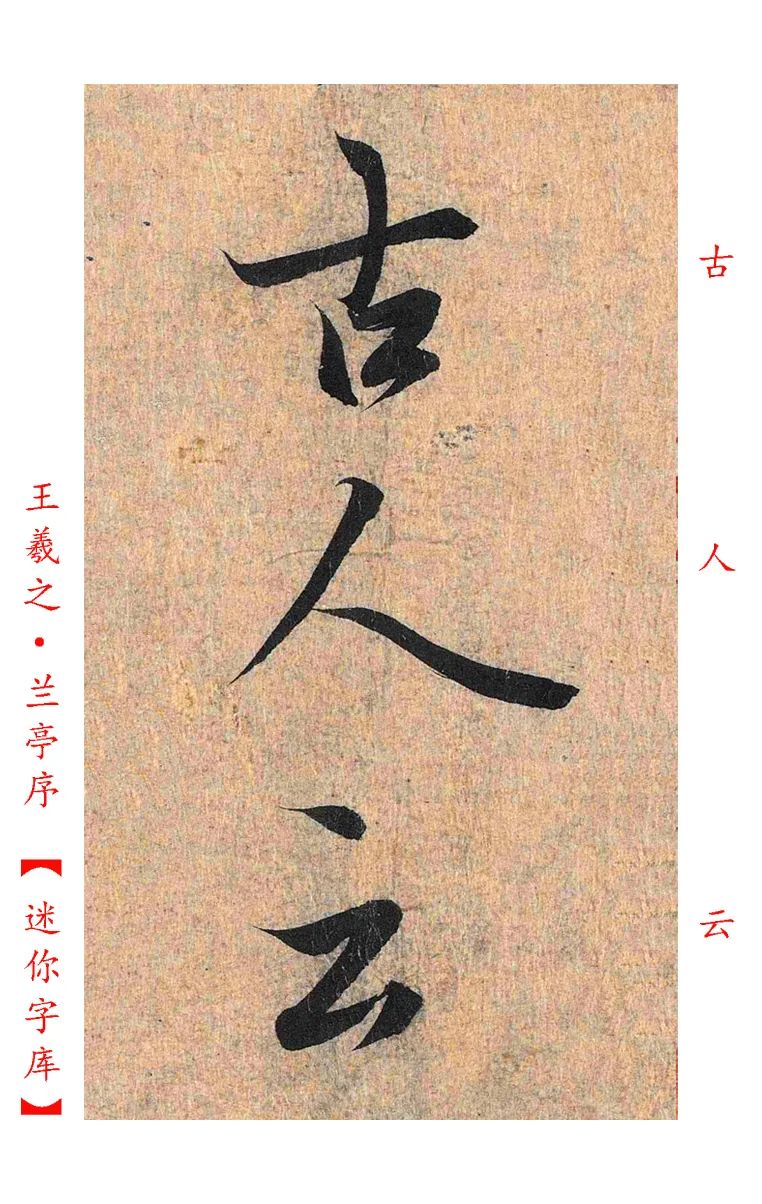 古人云
古
人
云
王羲之·兰亭序【迷你字库】